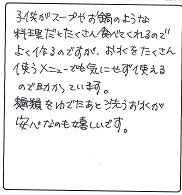 子供がスープやお鍋のような
料理だとたくさん食べてくれるので
よく作るのですが、お水をたくさん
使うメニューでも気にせず使える
ので助かっています。
麺類をゆでたあと洗うお水が
安心なのも嬉しいです。